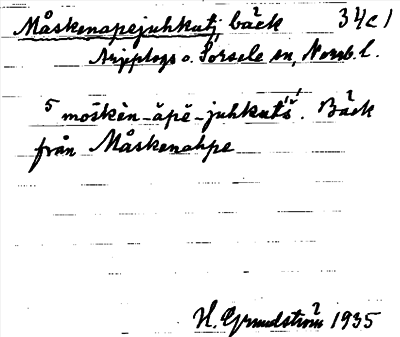 Måskenapejuhkatj, bäck 34c1
Arjeplogs o. Sorsele sn, Norrb. l.
5 moškèn-ăpĕ-juhkatš́. Bäck
från Måskenahpe
H. Grundström 1935